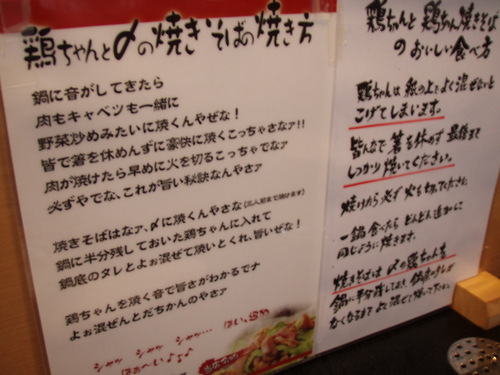 鶏ちゃんと〆の焼きそばの焼き方
鍋に音がしてきたら
肉もキャベツも一緒に
野菜炒めみたいに焼くんやぜな!
皆で箸を休めんずに豪快に焼くこっちゃさなァ!!
肉が焼けたら早めに火を切るこっちゃでなァ
必ずやでな、これが旨い秘訣なんやさァ
焼きそばはなァ、〆に焼くんやさな(二人前まで焼けます)
鍋に半分残しておいた鶏ちゃんに入れて
鍋底のタレとよぉ混ぜて焼いとくれ、旨いぜな!
鶏ちゃんを焼く音で旨さがわかるでナ
よぉ混ぜんとだちかんのやさァ
シャッ シャッ シャッ… はい、返め
はぁ〜い♪♪♪
鶏ちゃんと 鶏ちゃん焼きそば
のおいしい食べ方
鶏ちゃんは 紙の上でよく混ぜないと
こげてしまいます。
皆んなで 箸を休めず 最後まで
しっかり焼いてください。
焼けたら必ず火を切ってください
一鍋食べたら どんどん追加して
同じように焼きます。
焼きそばは 〆の鶏ちゃんを
鍋に半分残しておき、鍋底のタレが
なくなるまでよく混ぜて焼いて下さい。